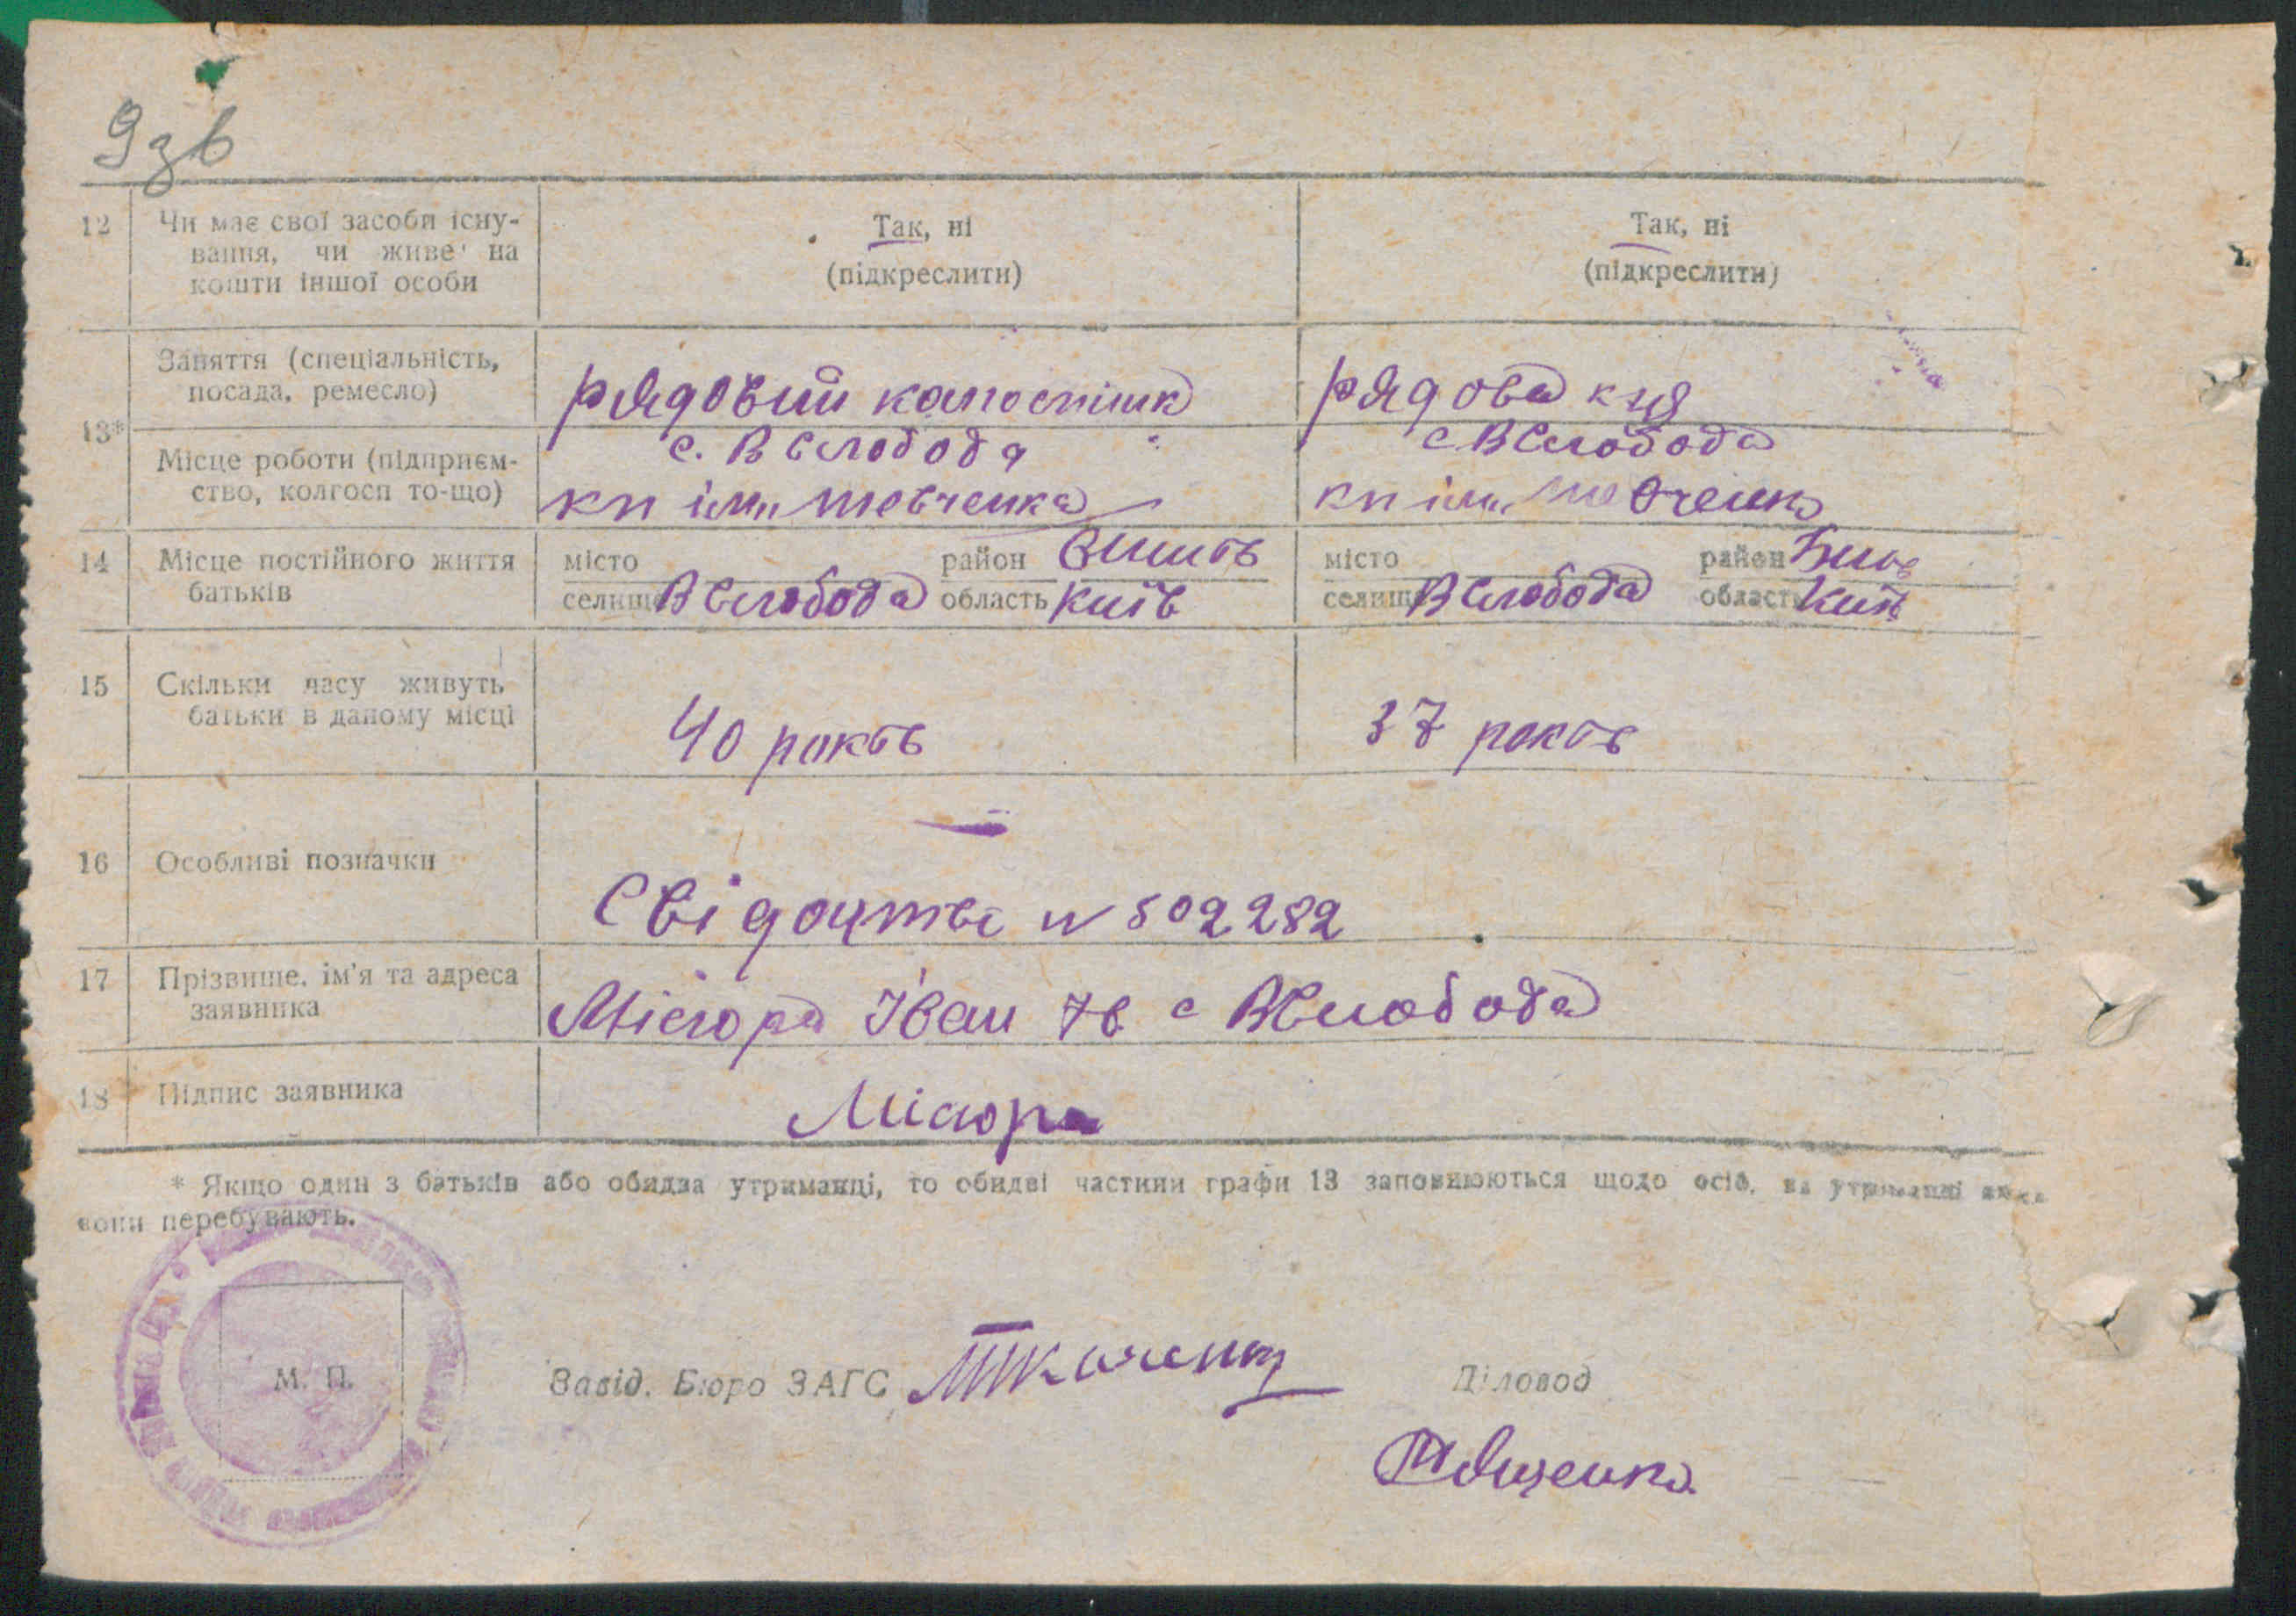 9зв
12 Чи має свої засоби існу- Так, ні Так, ні
вання, чи живе на (підкреслити) (підкреслити)
кошти іншої особи
Заняття (спеціальність,
посада, ремесло) рядовий рядова к ця
13*
с. В Слобода с. В Слобода
Місце роботи (підприєм-
ство, колгосп то-що) кп ім. Шевченка кп ім. Шевченка
14 Місце постійного життя місто район місто район
батьків селище В Слобода область Київ селище В Слобода область Київ
15 Скільки часу живуть
батьки в даному місці 40 років 37 років
16 Особливі позначки
Свідоцтво N 502282
17 Прізвище, ім'я та адреса
заявника Місюра Іван с В Слобода
18 Підпис заявника Місюра
* Якщо один з батьків або обидва утриманці, то обидві частини графи 13 заповнюються щодо осіб, на утриманні яких
вони перебувають.
М. П. Завід. Бюро ЗАГС Ткаченко Діловод
Ященко